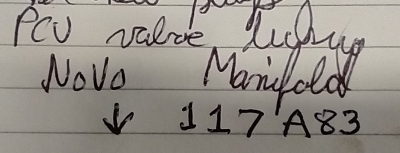 PCV valve
NoVo Manifold
↓ 117A83